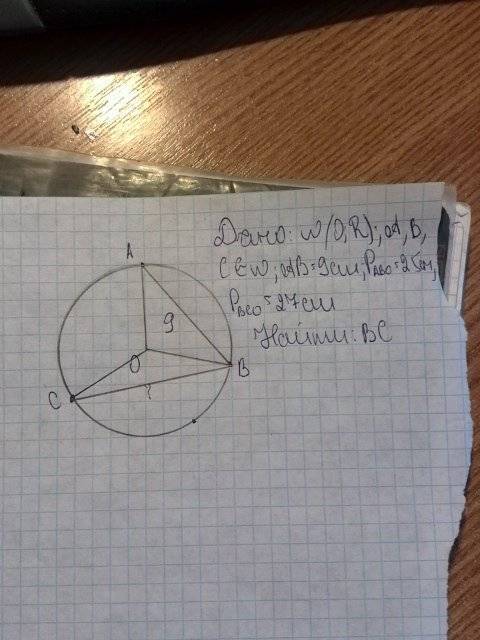 Дано: w(O,R); A, B,
C ∈ w; AB=9см; P_ABO=25см,
P_BCO=27см
Найти: BC
A
9
O
B
C
?